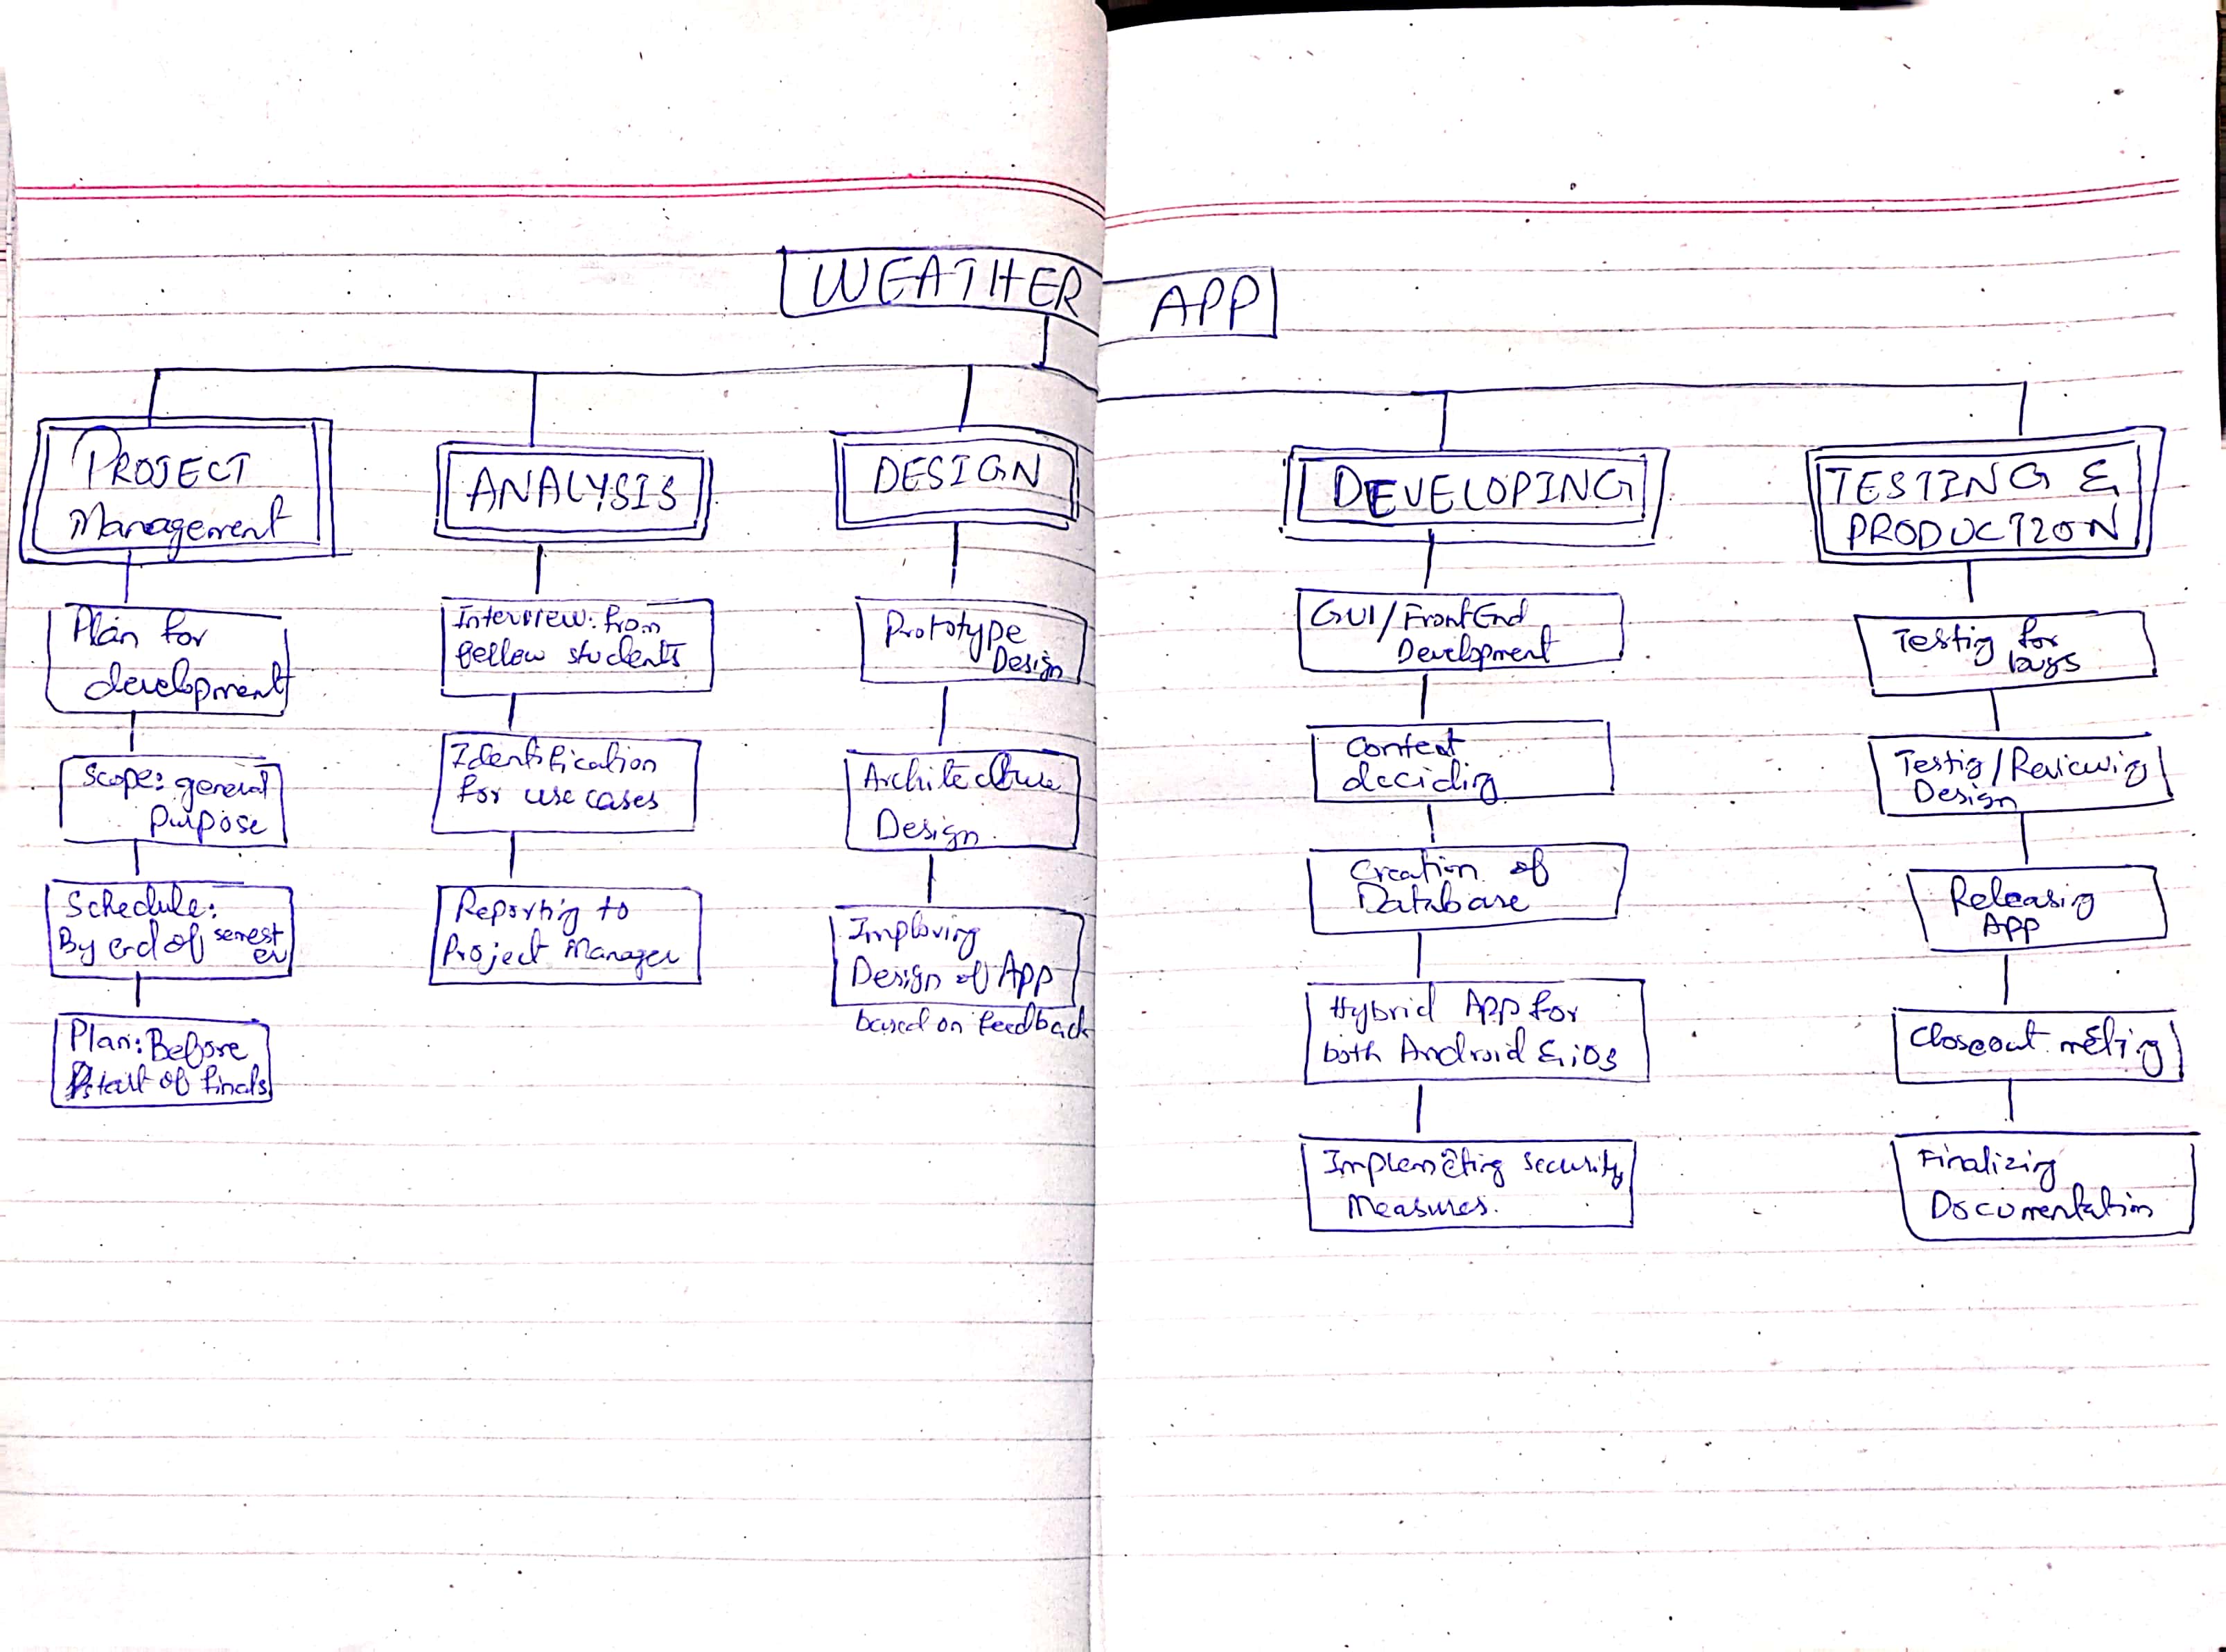 WEATHER APP
PROJECT
Management
Plan for
development
Scope: general
Purpose
Schedule:
By end of semester
Plan: Before
start of finals
ANALYSIS
Interview: from
fellow students
Identification
for use cases
Reporting to
Project Manager
DESIGN
Prototype
Design
Architecture
Design.
Improving
Design of App
based on feedback
DEVELOPING
GUI/FrontEnd
Development
Content
deciding
Creation of
Database
Hybrid App for
both Android & iOS
Implemeting security
Measures.
TESTING &
PRODUCTION
Testig for
bugs
Testig/Reviewig
Design
Releasig
App
Closeout meetig
Finalizing
Documentation